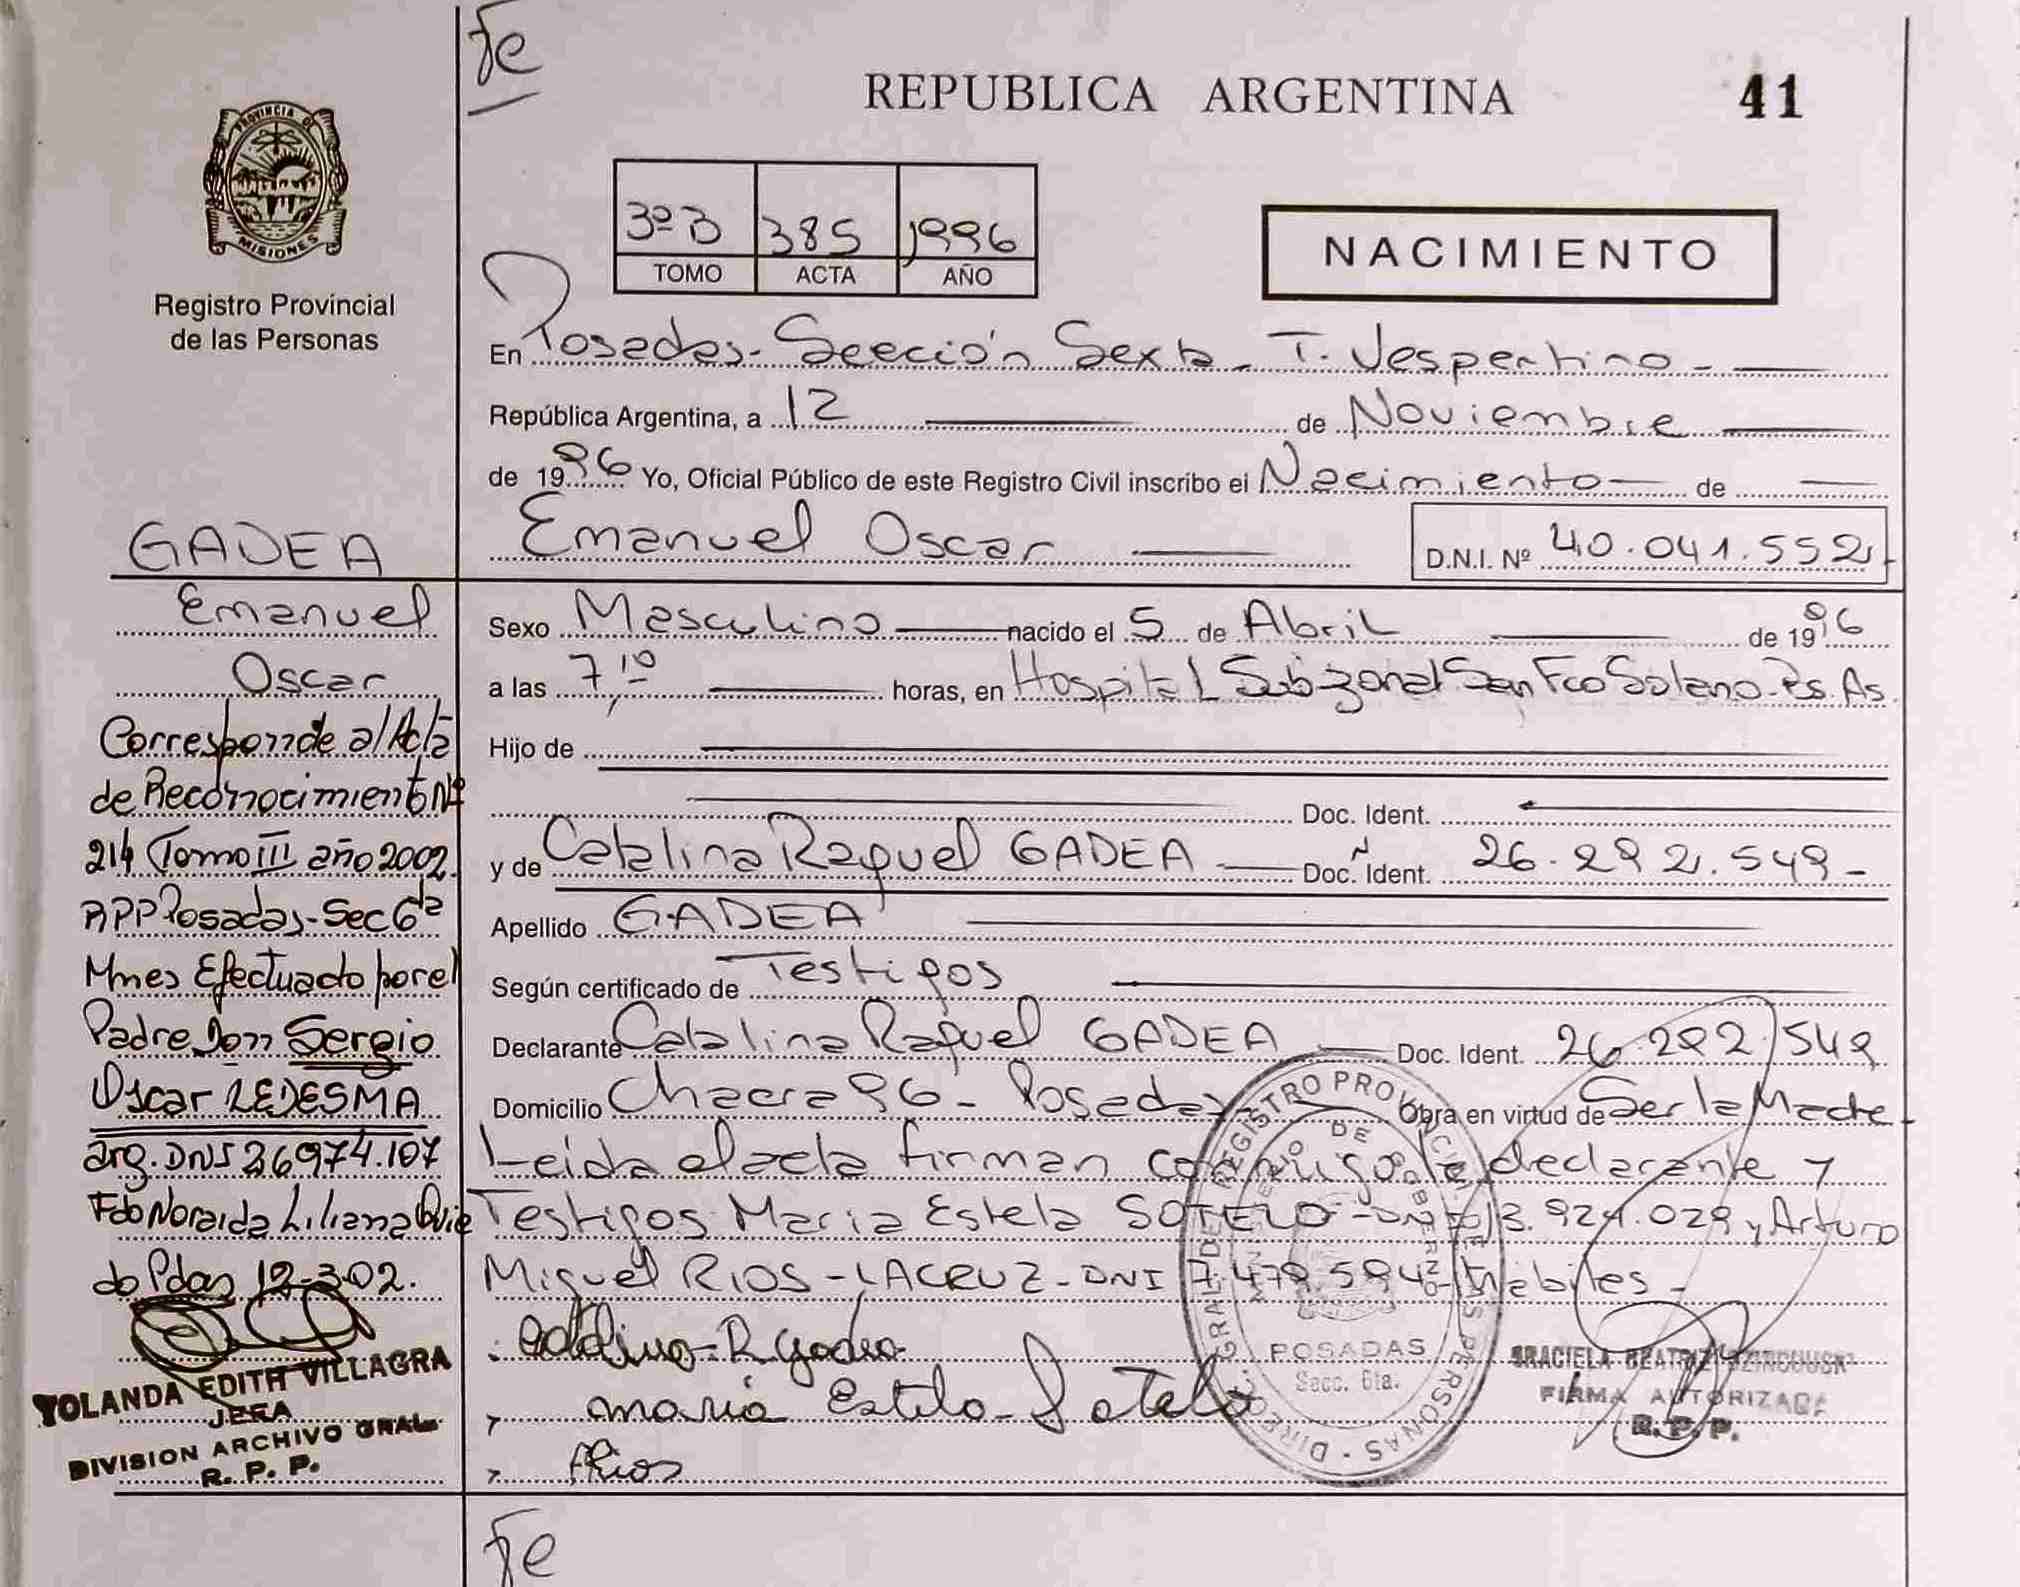 fe
REPUBLICA ARGENTINA
41
PROVINCIA DE
MISIONES
Registro Provincial
de las Personas
3º B 385 1996
TOMO ACTA AÑO
NACIMIENTO
En Posadas - Sección Sexta - T. Vespertino -
República Argentina, a 12 de Noviembre
de 1996 Yo, Oficial Público de este Registro Civil inscribo el Nacimiento de
Emanuel Oscar D.N.I. Nº 40.041.552
Sexo Masculino nacido el 5 de Abril de 1996
a las 7,10 horas, en Hospital Subzonal San Fco Solano - Bs. As.
Hijo de
Doc. Ident.
y de Catalina Raquel GADEA Doc. Ident. 26.292.549 -
Apellido GADEA
Según certificado de Testigos
Declarante Catalina Raquel GADEA Doc. Ident. 26.292.549
Domicilio Chacra 96 - Posadas - Obra en virtud de Ser la Madre -
Leida el acta firman conmigo la declarante y
Testigos Maria Estela SOTELO - DNI 3.924.029 y Arturo
Miguel RIOS - LACRUZ - DNI 7.479.594 - Hábiles -
Catalina R Gadea
Maria Estela Sotelo
Rios
GADEA
Emanuel
Oscar
Corresponde al Acta
de Reconocimiento Nº
214 Tomo III año 2002
RPP Posadas - Sec 6ta
Mnes Efectuado por el
Padre Don Sergio
Oscar LEDESMA
arg. DNI 26974.107
Fdo Noraida Liliana Ovie
do Pdas 12-3-02.
YOLANDA EDITH VILLAGRA
JEFA
DIVISION ARCHIVO GRAL
R. P. P.
DIRECC. GRAL DE REGISTRO PROVINCIAL DE LAS PERSONAS
MINISTERIO DE GOBIERNO
POSADAS
Secc. 6ta.
GRACIELA BEATRIZ
FIRMA AUTORIZADA
R. P. P.
fe